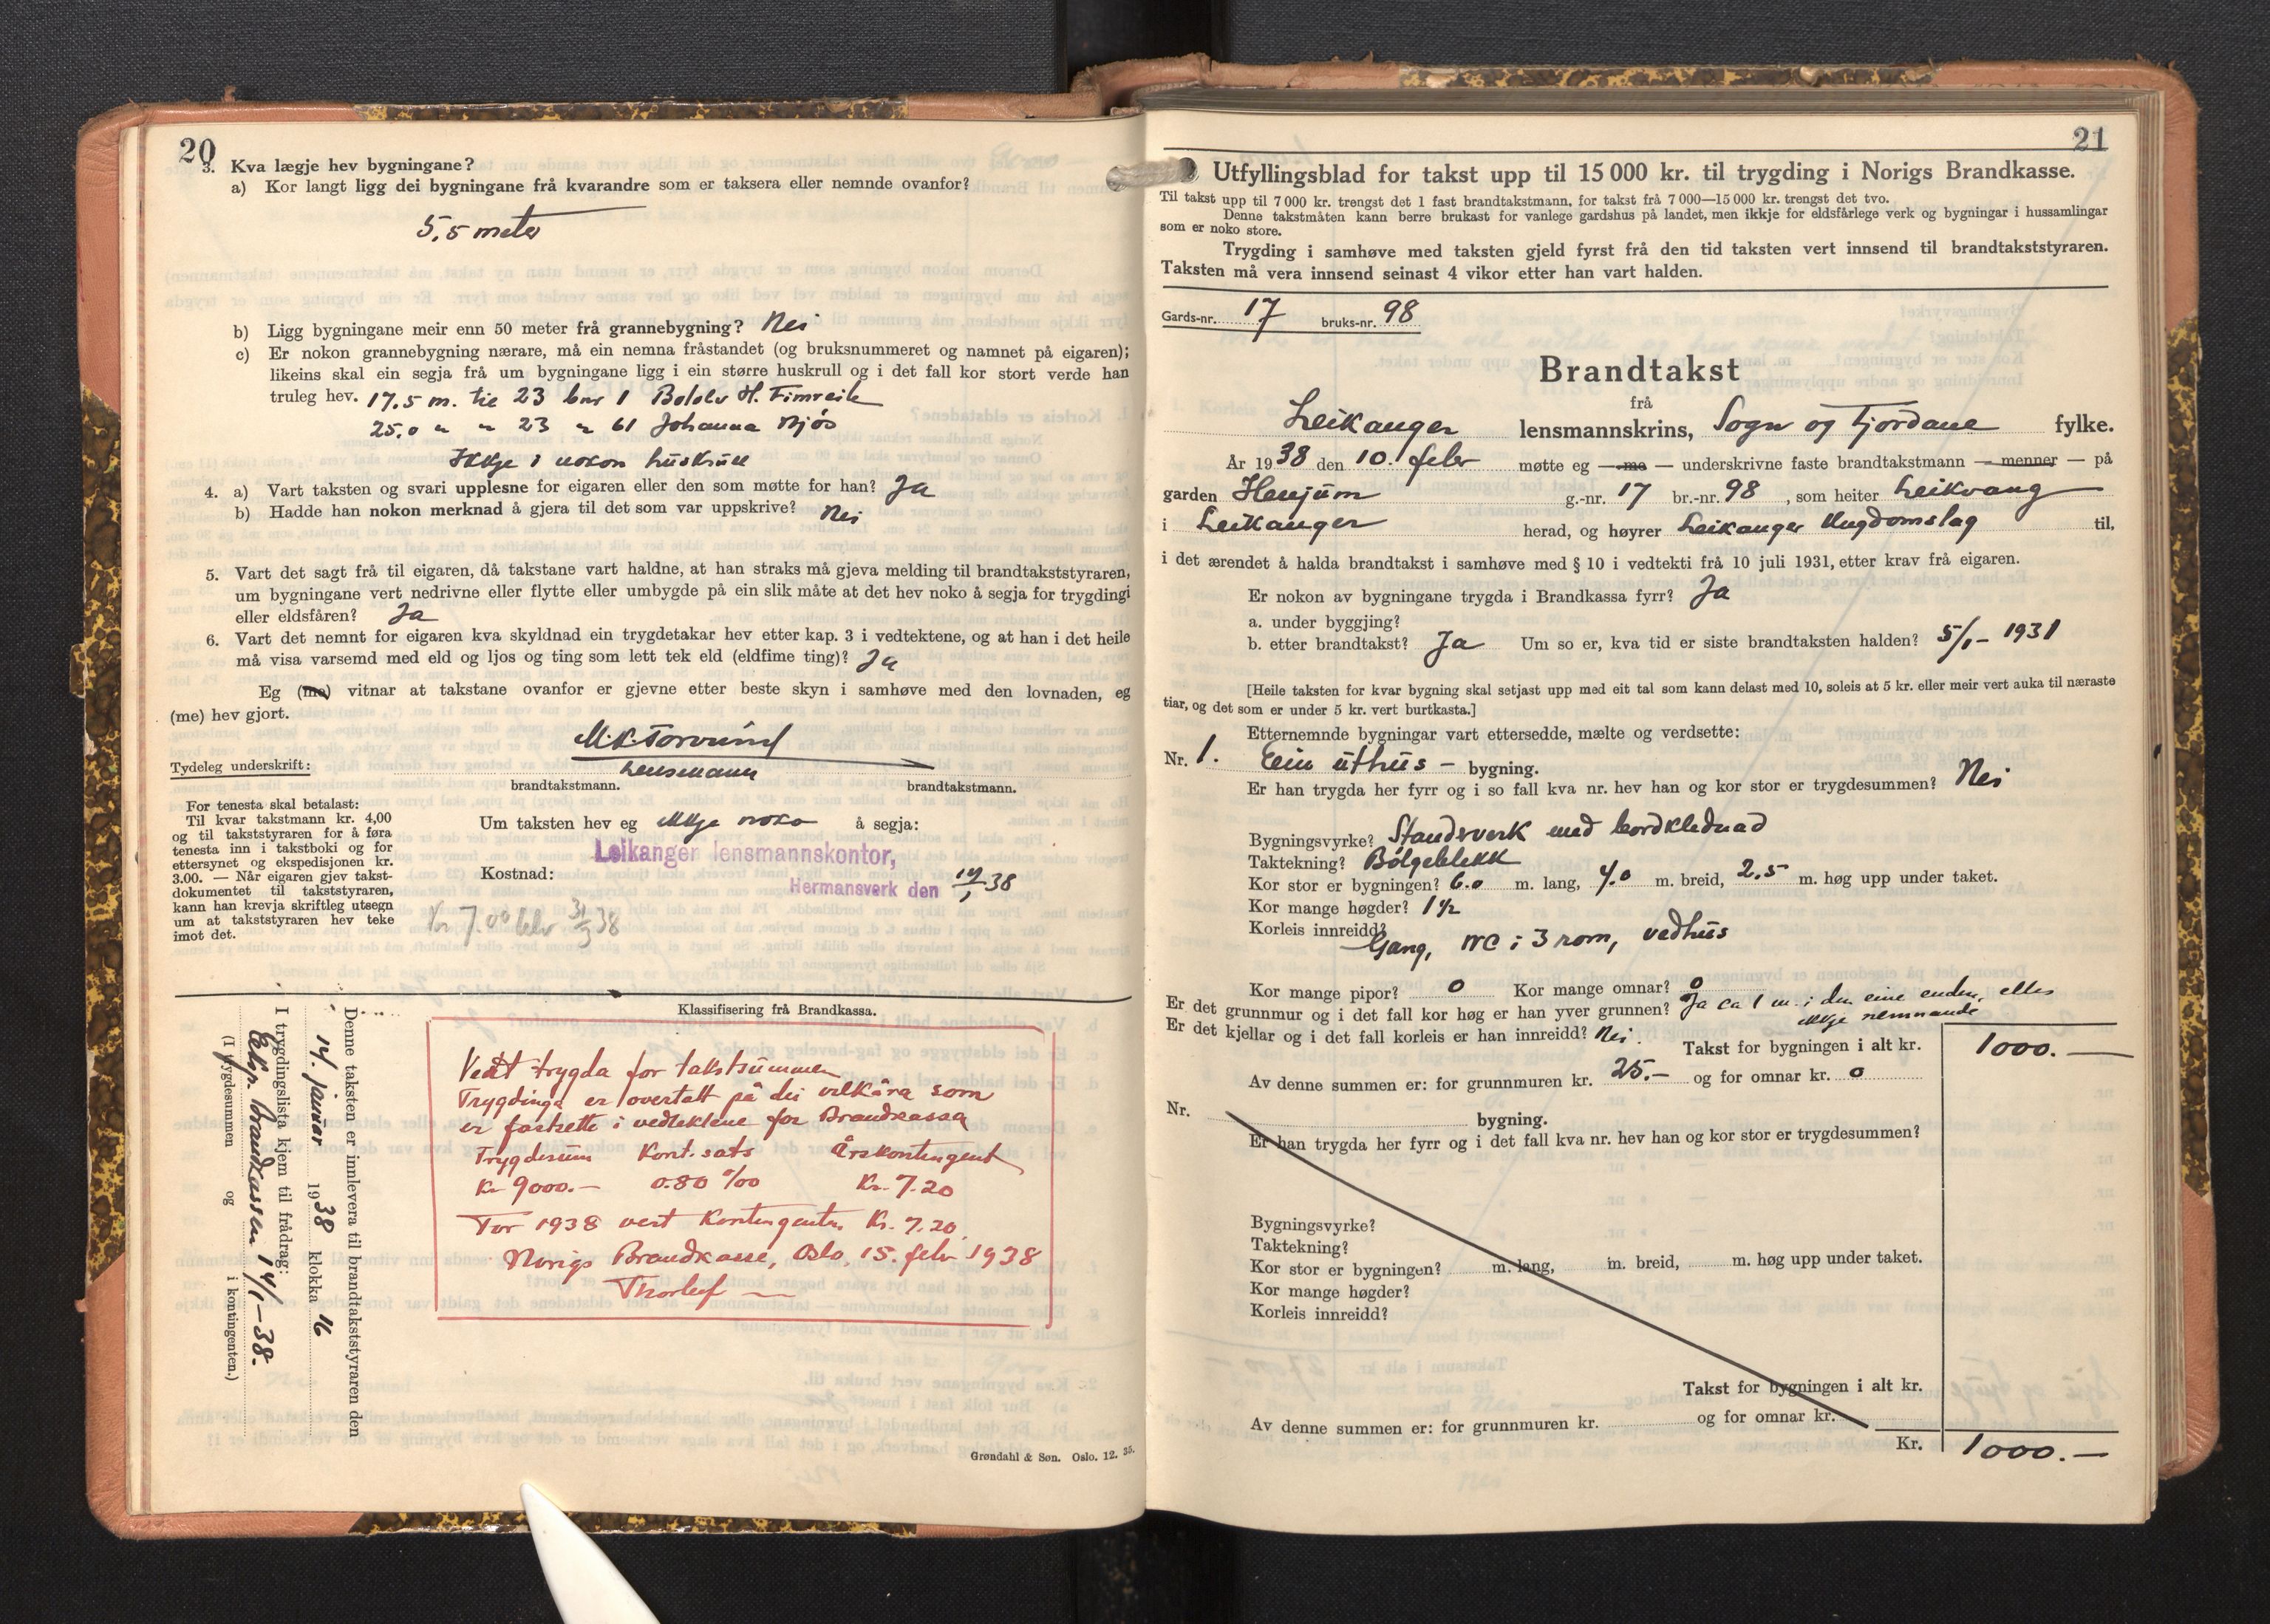 20
3. Kva lægje hev bygningane?
a) Kor langt ligg dei bygningane frå kvarandre som er taksera eller nemnde ovanfor?
5,5 meter
b) Ligg bygningane meir enn 50 meter frå grannebygning? Nei
c) Er nokon grannebygning nærare, må ein nemna fråstandet (og bruksnummeret og namnet på eigaren);
likeins skal ein segja frå um bygningane ligg i ein større huskrull og i det fall kor stort verde han
truleg hev. 17.5 m. til 23 bnr 1 Bottolv H. Fimreite
25.0 " " 23 " 61 Johanna Njøs
Ikkje i nokon huskrull
4. a) Vart taksten og svari upplesne for eigaren eller den som møtte for han? Ja
b) Hadde han nokon merknad å gjera til det som var uppskrive? Nei
5. Vart det sagt frå til eigaren, då takstane vart haldne, at han straks må gjeva melding til brandtakststyraren,
um bygningane vert nedrivne eller flytte eller umbygde på ein slik måte at det hev noko å segja for trygdingi
eller eldsfåren? Ja
6. Vart det nemnt for eigaren kva skyldnad ein trygdetakar hev etter kap. 3 i vedtektene, og at han i det heile
må visa varsemd med eld og ljos og ting som lett tek eld (eldfime ting)? Ja
Eg (me) vitnar at takstane ovanfor er gjevne etter beste skyn i samhøve med den lovnaden, eg
(me) hev gjort.
M.K. Torvund
Tydeleg underskrift:
Lensmann
brandtakstmann. brandtakstmann.
For tenesta skal betalast:
Til kvar takstmann kr. 4,00
og til takststyraren for å føra
tenesta inn i takstboki og for
ettersynet og ekspedisjonen kr.
3.00. — Når eigaren gjev takst-
dokumentet til takststyraren,
kann han krevja skriftleg utsegn
um at takststyraren hev teke
imot det.
Um taksten hev eg ikkje noko å segja:
Leikanger lensmannskontor,
Kostnad:
Hermansverk den 14/1 38
Kr 7.00 31/3 38
Klassifisering frå Brandkassa.
Vert trygda for takstsummen
Trygdinga er overtatt på dei vilkåra som
er fastsette i vedtektene for Brandkassa
Trygdesum Kont.sats Årskontingent
Kr 9000.- 0.80 ‰ Kr. 7.20
For 1938 vert kontingenten Kr. 7.20.
Norigs Brandkasse, Oslo, 15. febr 1938
Thorleif
Denne taksten er innlevera til brandtakststyraren den
14. januar 1938 klokka 16
I trygdingslista kjem til frådrag:
Eksp. Brandkassen 14/1-38.
(I trygdesummen og i kontingenten.)
Grøndahl & Søn. Oslo. 12. 35.
21
Utfyllingsblad for takst upp til 15 000 kr. til trygding i Norigs Brandkasse.
Til takst upp til 7 000 kr. trengst det 1 fast brandtakstmann, for takst frå 7 000—15 000 kr. trengst det tvo.
Denne takstmåten kann berre brukast for vanlege gardshus på landet, men ikkje for eldsfårlege verk og bygningar i hussamlingar
som er noko store.
Trygding i samhøve med taksten gjeld fyrst frå den tid taksten vert innsend til brandtakststyraren.
Taksten må vera innsend seinast 4 vikor etter han vart halden.
Gards-nr. 17 bruks-nr. 98
Brandtakst
frå
Leikanger lensmannskrins, Sogn og Fjordane fylke.
År 1938 den 10. febr møtte eg — me — underskrivne faste brandtakstmann — menner — på
garden Henjum g.-nr. 17 br.-nr. 98, som heiter Leikvang
i Leikanger herad, og høyrer Leikanger Ungdomslag til,
i det ærendet å halda brandtakst i samhøve med § 10 i vedtekti frå 10 juli 1931, etter krav frå eigaren.
Er nokon av bygningane trygda i Brandkassa fyrr? Ja
a. under byggjing?
b. etter brandtakst? Ja Um so er, kva tid er siste brandtaksten halden? 5/1- 1931
[Heile taksten for kvar bygning skal setjast upp med eit tal som kann delast med 10, soleis at 5 kr. eller meir vert auka til næraste
tiar, og det som er under 5 kr. vert burtkasta.]
Etternemnde bygningar vart ettersedde, mælte og verdsette:
Nr. 1. Ein uthus - bygning.
Er han trygda her fyrr og i so fall kva nr. hev han og kor stor er trygdesummen? Nei
Bygningsvyrke? Standsverk med bordklednad
Taktekning? Bølgeblekk
Kor stor er bygningen? 6.0 m. lang, 4.0 m. breid, 2.5 m. høg upp under taket.
Kor mange høgder? 1 1/2
Korleis innreidd? Gang, WC i 3 rom, vedhus
Kor mange pipor? 0 Kor mange omnar? 0
Er det grunnmur og i det fall kor høg er han yver grunnen? Ja ca 1 m. i den eine enden, elles
ikkje nemnande
Er det kjellar og i det fall korleis er han innreidd? Nei.
Takst for bygningen i alt kr. 1000.-
Av denne summen er: for grunnmuren kr. 25.- og for omnar kr. 0
Nr. bygning.
Er han trygda her fyrr og i det fall kva nr. hev han og kor stor er trygdesummen?
Bygningsvyrke?
Taktekning?
Kor stor er bygningen? m. lang, m. breid, m. høg upp under taket.
Kor mange høgder?
Korleis innreidd?
Takst for bygningen i alt kr.
Av denne summen er: for grunnmuren kr. og for omnar kr.
Kr. 1000.-